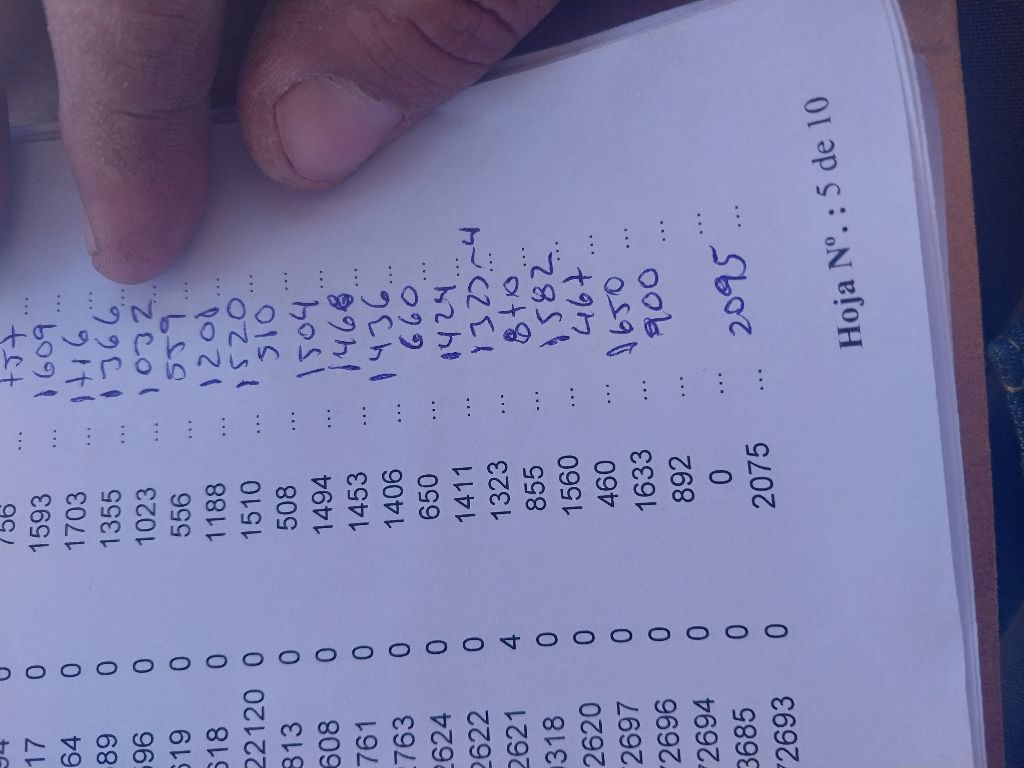 0 756 ... 757 ...
17 0 1593 ... 1609 ...
64 0 1703 ... 1716 ...
89 0 1355 ... 1366 ...
596 0 1023 ... 1032 ...
619 0 556 ... 559 ...
618 0 1188 ... 1208 ...
22120 0 1510 ... 1520 ...
813 0 508 ... 510 ...
608 0 1494 ... 1504 ...
761 0 1453 ... 1468 ...
2763 0 1406 ... 1436 ...
2624 0 650 ... 660 ...
2622 0 1411 ... 1424 ...
2621 4 1323 ... 1327~4 ...
0318 0 855 ... 870 ...
2620 0 1560 ... 1582 ...
2697 0 460 ... 467 ...
72696 0 1633 ... 1650 ...
72694 0 892 ... 900 ...
3685 0 0 ... ...
72693 0 2075 ... 2095 ...
Hoja Nº. : 5 de 10